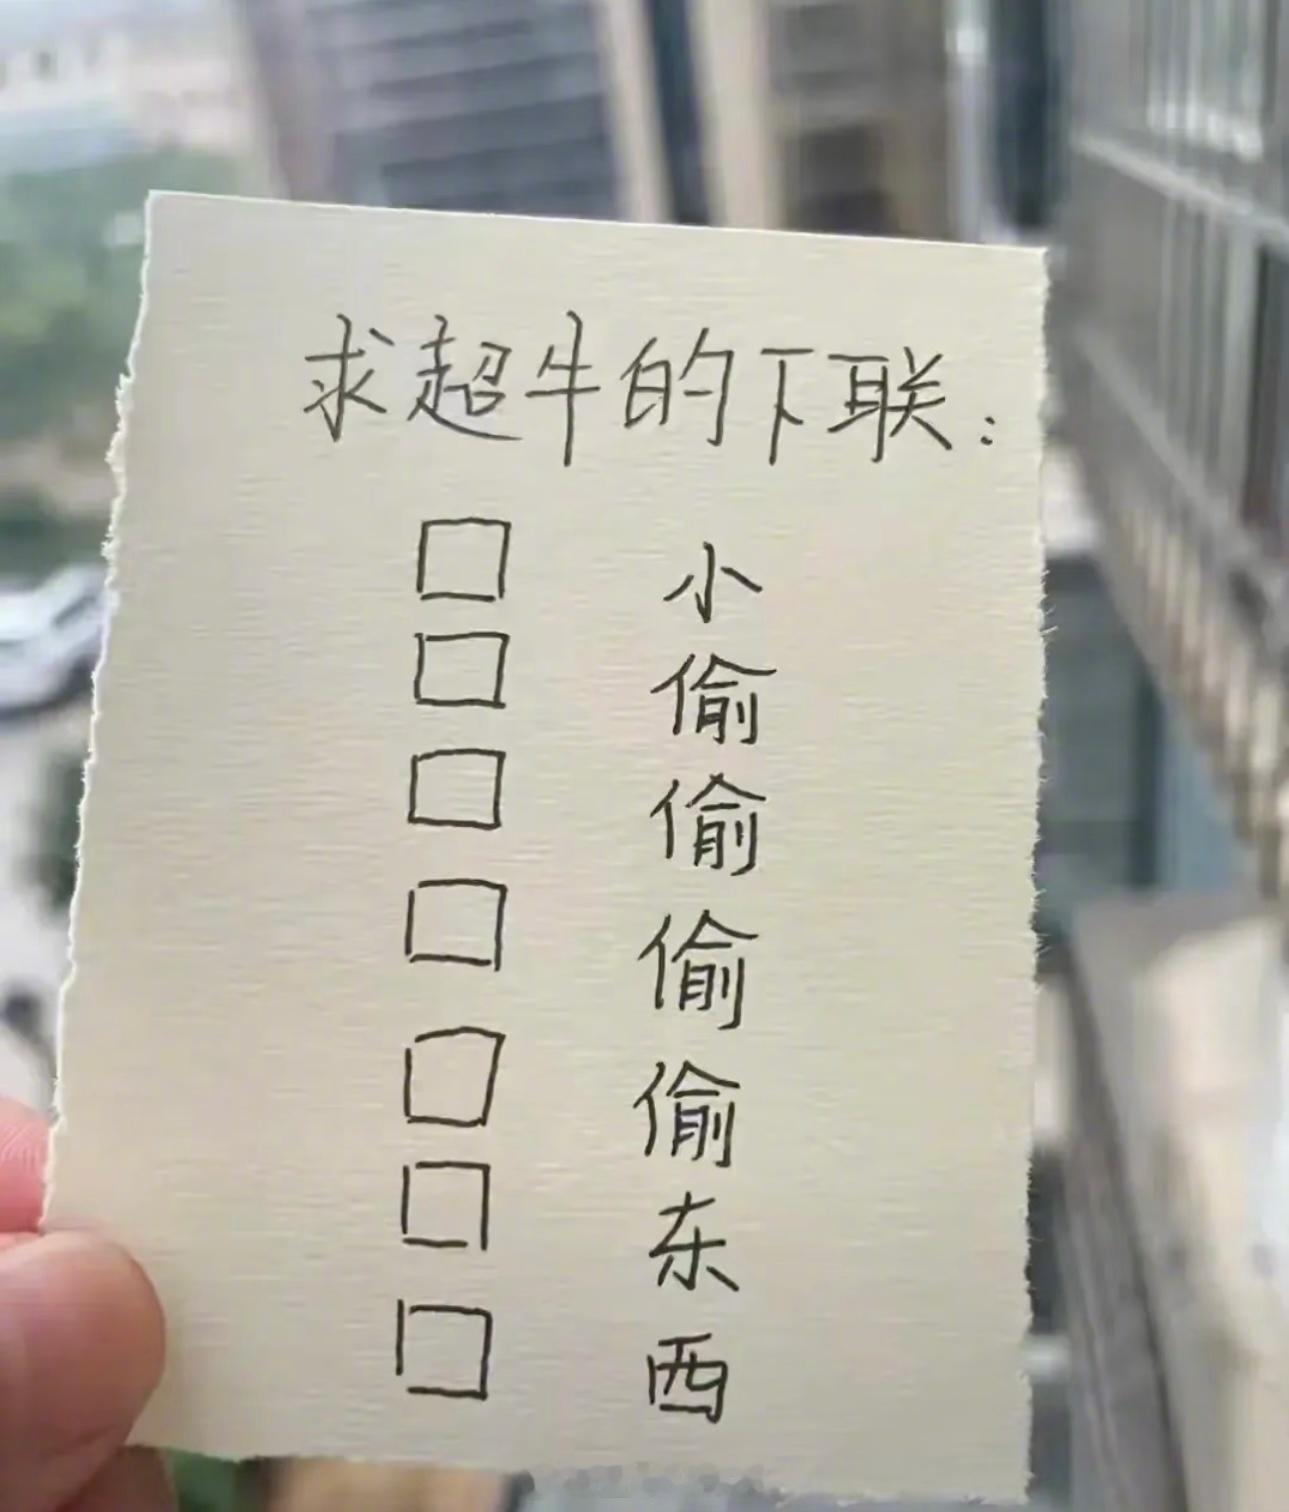 求超牛的下联:
小偷偷偷偷东西
□□□□□□□